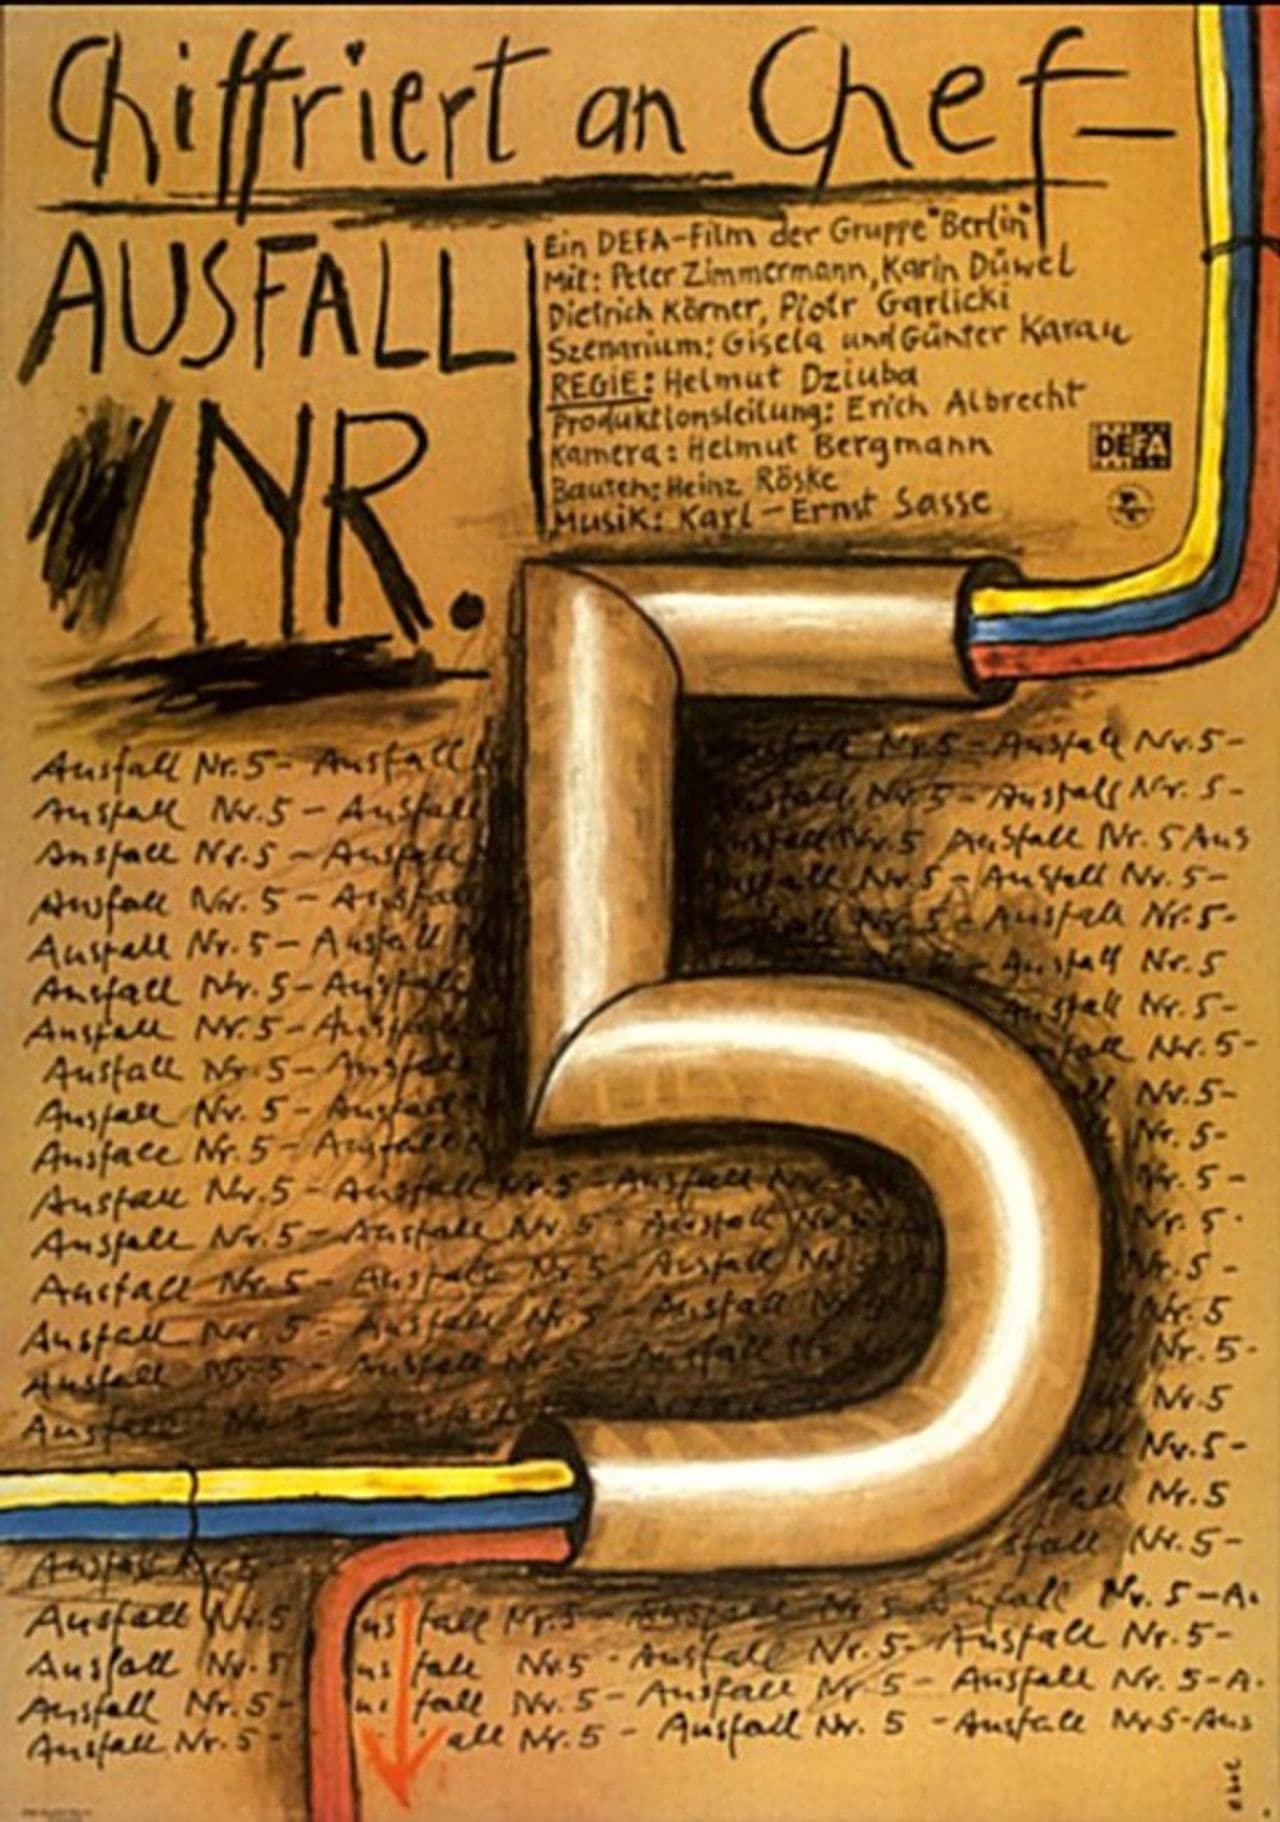 Chiffriert an Chef –
AUSFALL
NR.
5
Ein DEFA-Film der Gruppe "Berlin"
Mit: Peter Zimmermann, Karin Düwel
Dietrich Körner, Piotr Garlicki
Szenarium: Gisela und Günter Karau
REGIE: Helmut Dziuba
Produktionsleitung: Erich Albrecht
Kamera: Helmut Bergmann
Bauten: Heinz Röske
Musik: Karl-Ernst Sasse
DEFA
Ausfall Nr. 5 - Ausfall
Nr. 5 - Ausfall Nr. 5 -
Ausfall Nr. 5 - Ausfall
Nr. 5 - Ausfall Nr. 5 -
Ausfall Nr. 5 - Ausfall
Nr. 5 Ausfall Nr. 5 Aus
Ausfall Nr. 5 - Ausfall
Nr. 5 - Ausfall Nr. 5 -
Ausfall Nr. 5 - Ausfall
Nr. 5 - Ausfall Nr. 5 -
Ausfall Nr. 5 - Ausfall
- Ausfall Nr. 5
Ausfall Nr. 5 - Ausfall
Ausfall Nr. 5 -
Ausfall Nr. 5 - Ausfall
Nr. 5 -
Ausfall Nr. 5 - Ausfall
Nr. 5 -
Ausfall Nr. 5 - Ausfall
Nr. 5 -
Ausfall Nr. 5 - Ausfall Nr. 5 - Ausfall Nr. 5
Nr. 5 -
Ausfall Nr. 5 - Ausfall Nr. 5 - Ausfall Nr. 5
Nr. 5 -
Ausfall Nr. 5 - Ausfall Nr. 5 - Ausfall Nr. 5
Nr. 5 -
Ausfall Nr. 5 - Ausfall Nr. 5 - Ausfall
Nr. 5
Ausfall Nr. 5 - Ausfall Nr. 5 - Ausfall
Nr. 5 -
Ausfall
Nr. 5
Nr. 5 -
Nr. 5
Nr. 5 -
Ausfall Nr. 5
Ausfall Nr. 5 - Ausfall Nr. 5 - Ausfall Nr. 5 - A.
Ausfall Nr. 5 - Ausfall Nr. 5 - Ausfall Nr. 5 -
Ausfall Nr. 5 - Ausfall Nr. 5 - Ausfall Nr. 5 - A.
Ausfall Nr. 5 - Ausfall Nr. 5 - Ausfall Nr. 5 - Aus